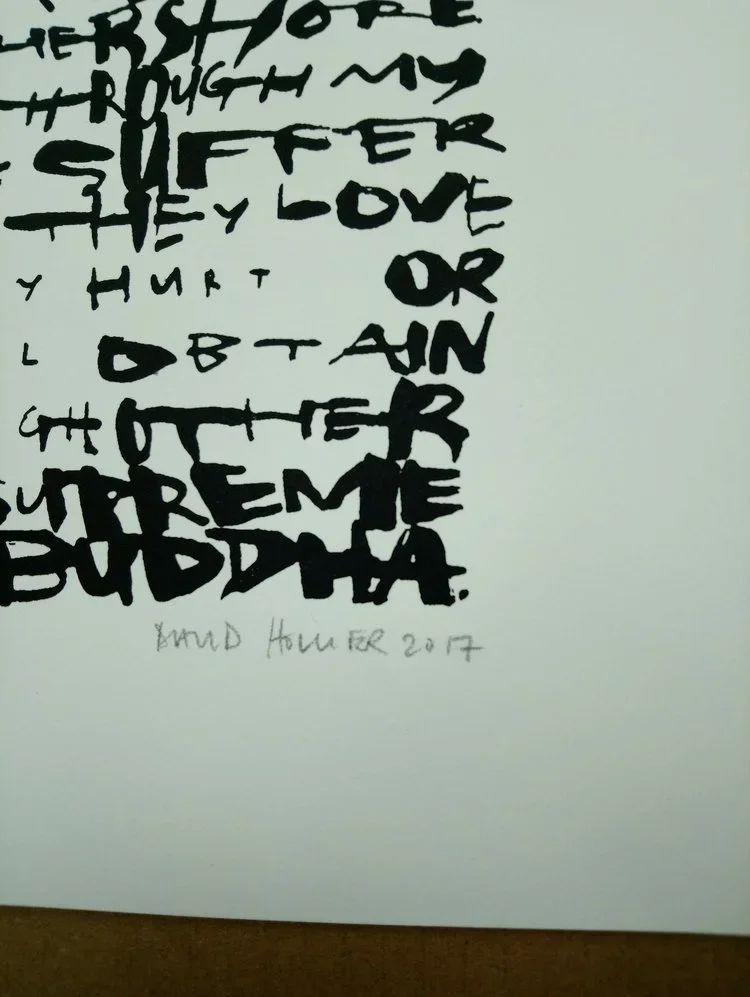 HERSHORE
HROUGH MY
SUFFER
THEY LOVE
Y HURT OR
L OBTAIN
GH OTHER
SUPREME
BUDDHA.
DAVID HOLLIER 2017